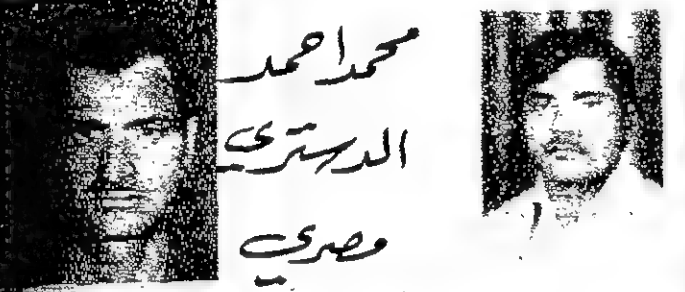 محمد احمد
الدستري
مصري